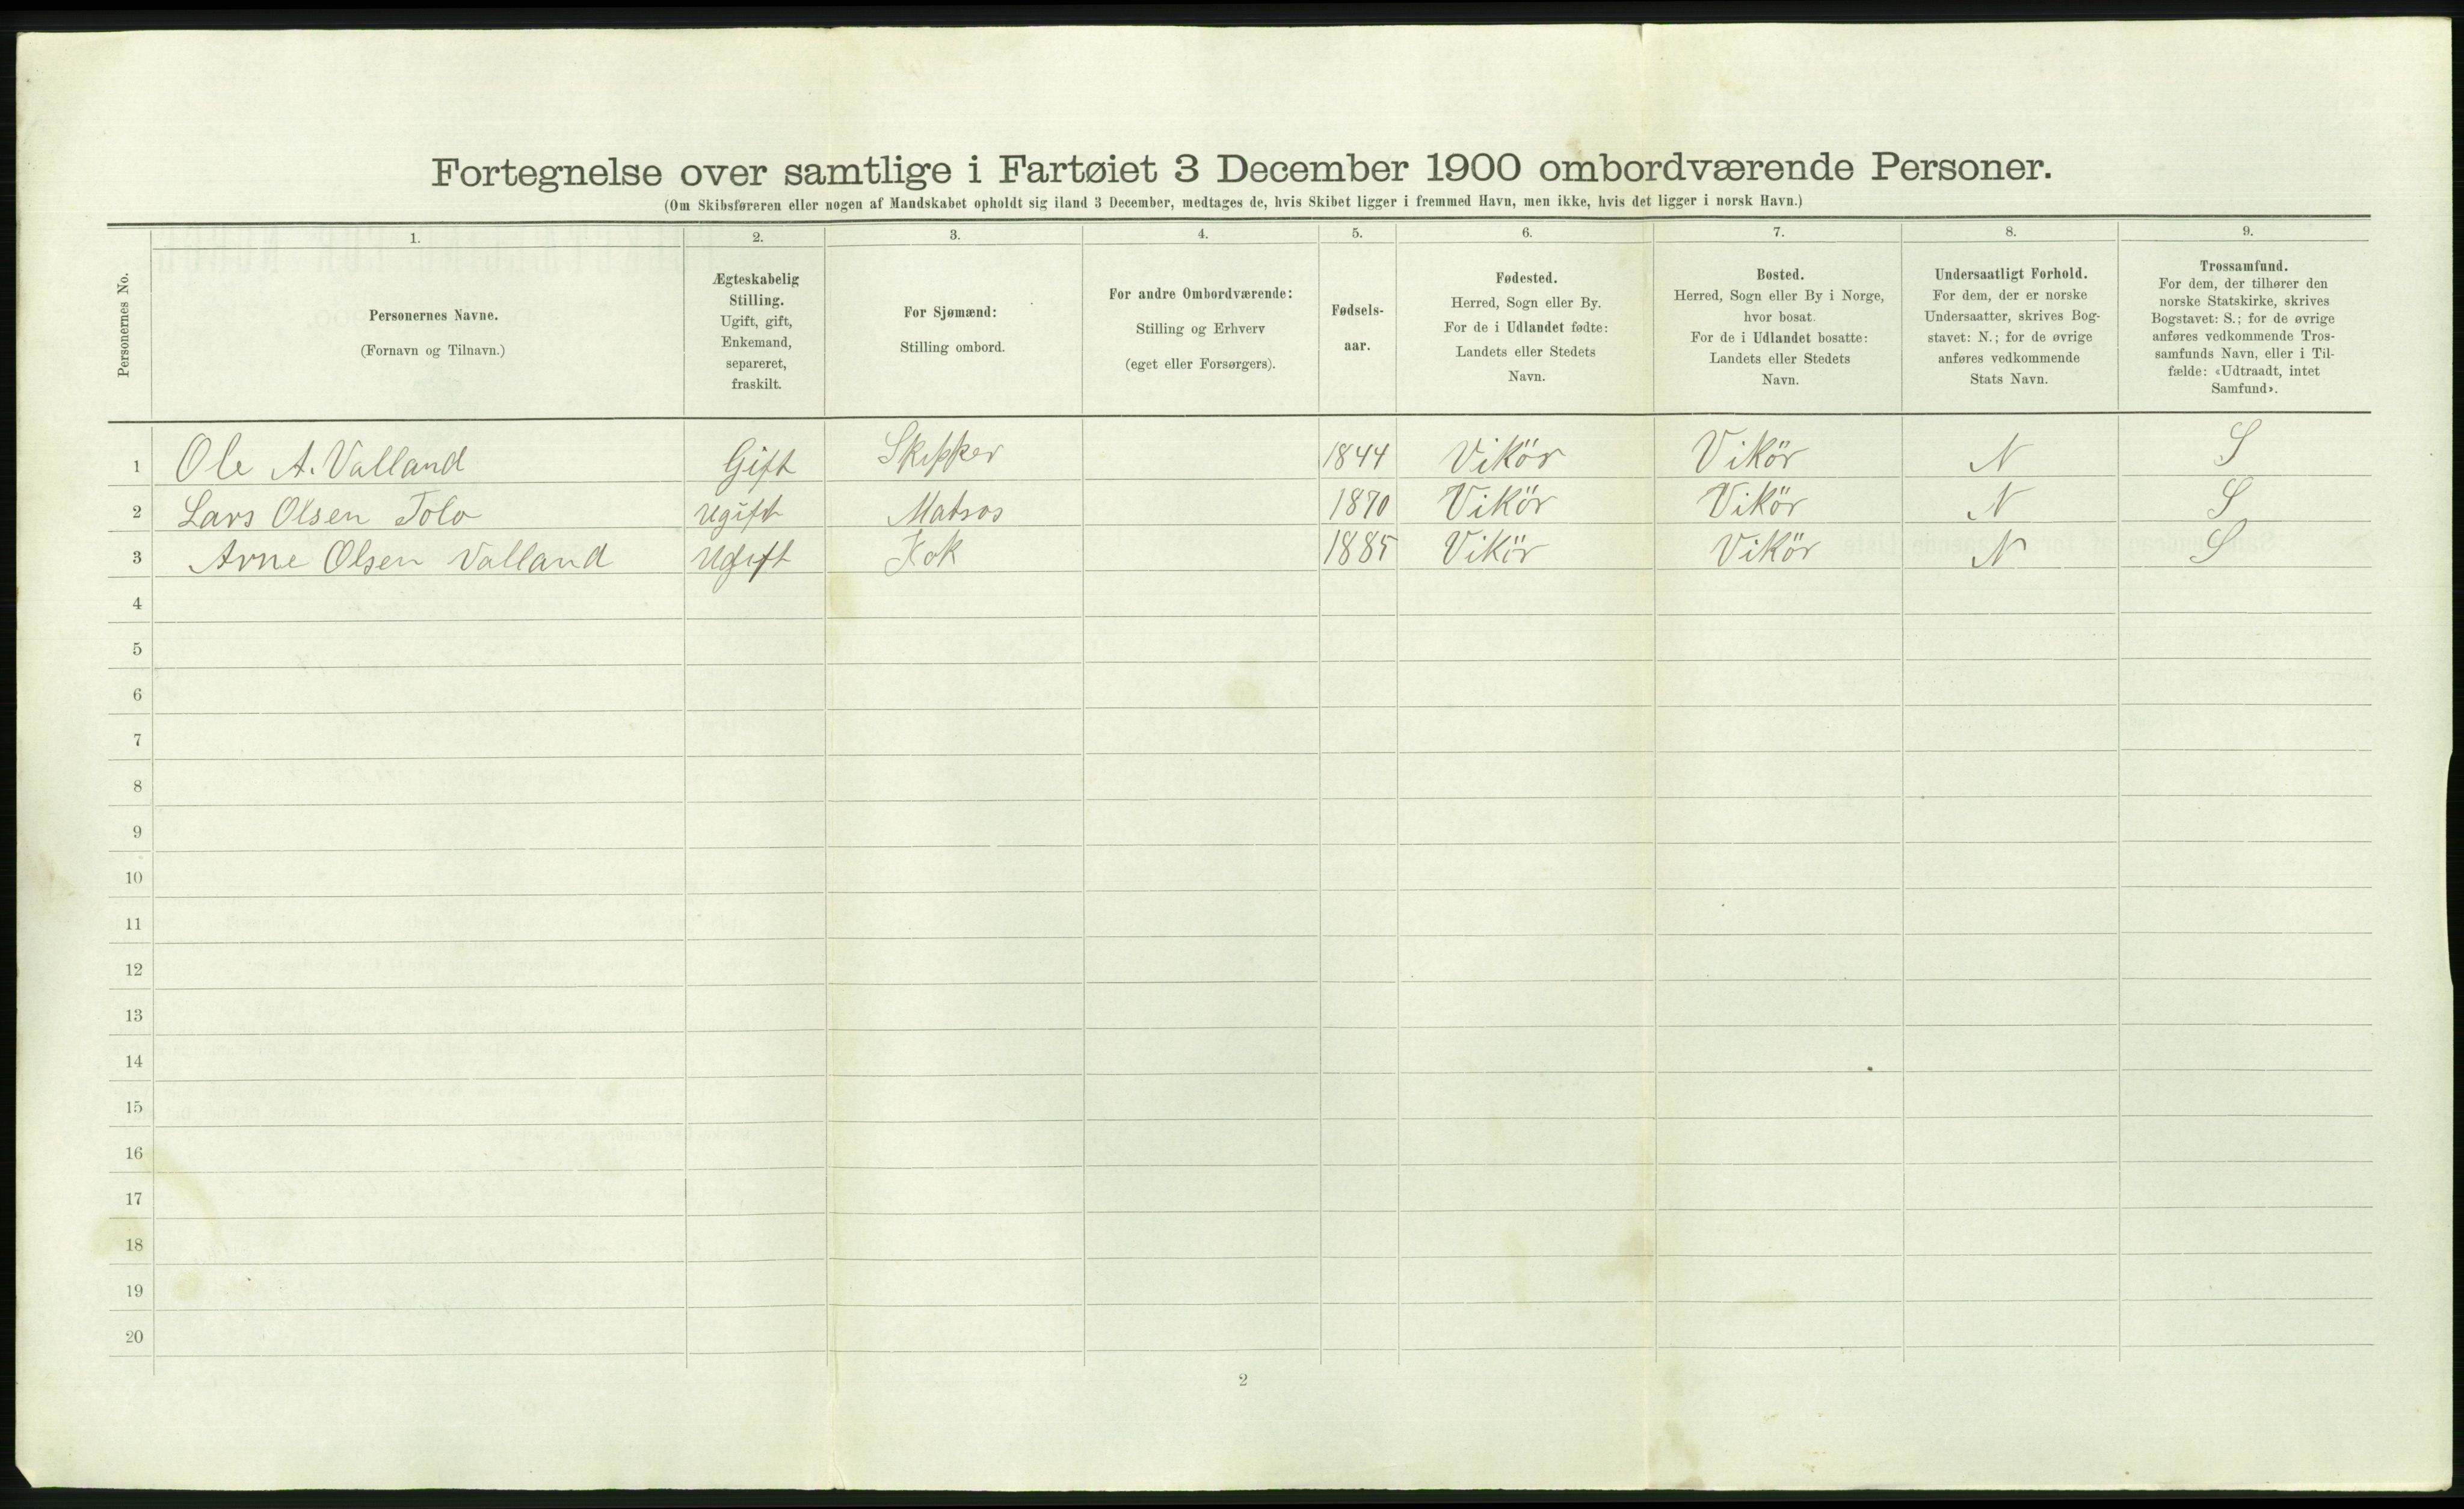 Fortegnelse over samtlige i Fartøiet 3 December 1900 ombordværende Personer.
(Om Skibsføreren eller nogen af Mandskabet opholdt sig iland 3 December, medtages de, hvis Skibet ligger i fremmed Havn, men ikke, hvis det ligger i norsk Havn.)
Personernes No.
1.
Personernes Navne.
(Fornavn og Tilnavn.)
2.
Ægteskabelig
Stilling.
Ugift, gift,
Enkemand,
separeret,
fraskilt.
3.
For Sjømænd:
Stilling ombord.
4.
For andre Ombordværende:
Stilling og Erhverv
(eget eller Forsørgers).
5.
Fødsels-
aar.
6.
Fødested.
Herred, Sogn eller By.
For de i Udlandet fødte:
Landets eller Stedets
Navn.
7.
Bosted.
Herred, Sogn eller By i Norge,
hvor bosat.
For de i Udlandet bosatte:
Landets eller Stedets
Navn.
8.
Undersaatligt Forhold.
For dem, der er norske
Undersaatter, skrives Bog-
stavet: N.; for de øvrige
anføres vedkommende
Stats Navn.
9.
Trossamfund.
For dem, der tilhører den
norske Statskirke, skrives
Bogstavet: S.; for de øvrige
anføres vedkommende Tros-
samfunds Navn, eller i Til-
fælde: «Udtraadt, intet
Samfund».
1 Ole A. Valland Gift Skipper 1844 Vikör Vikör N S
2 Lars Olsen Tolo Ugift Matros 1870 Vikör Vikör N S
3 Arne Olsen Valland Ugift Kok 1885 Vikör Vikör N S
4
5
6
7
8
9
10
11
12
13
14
15
16
17
18
19
20
2